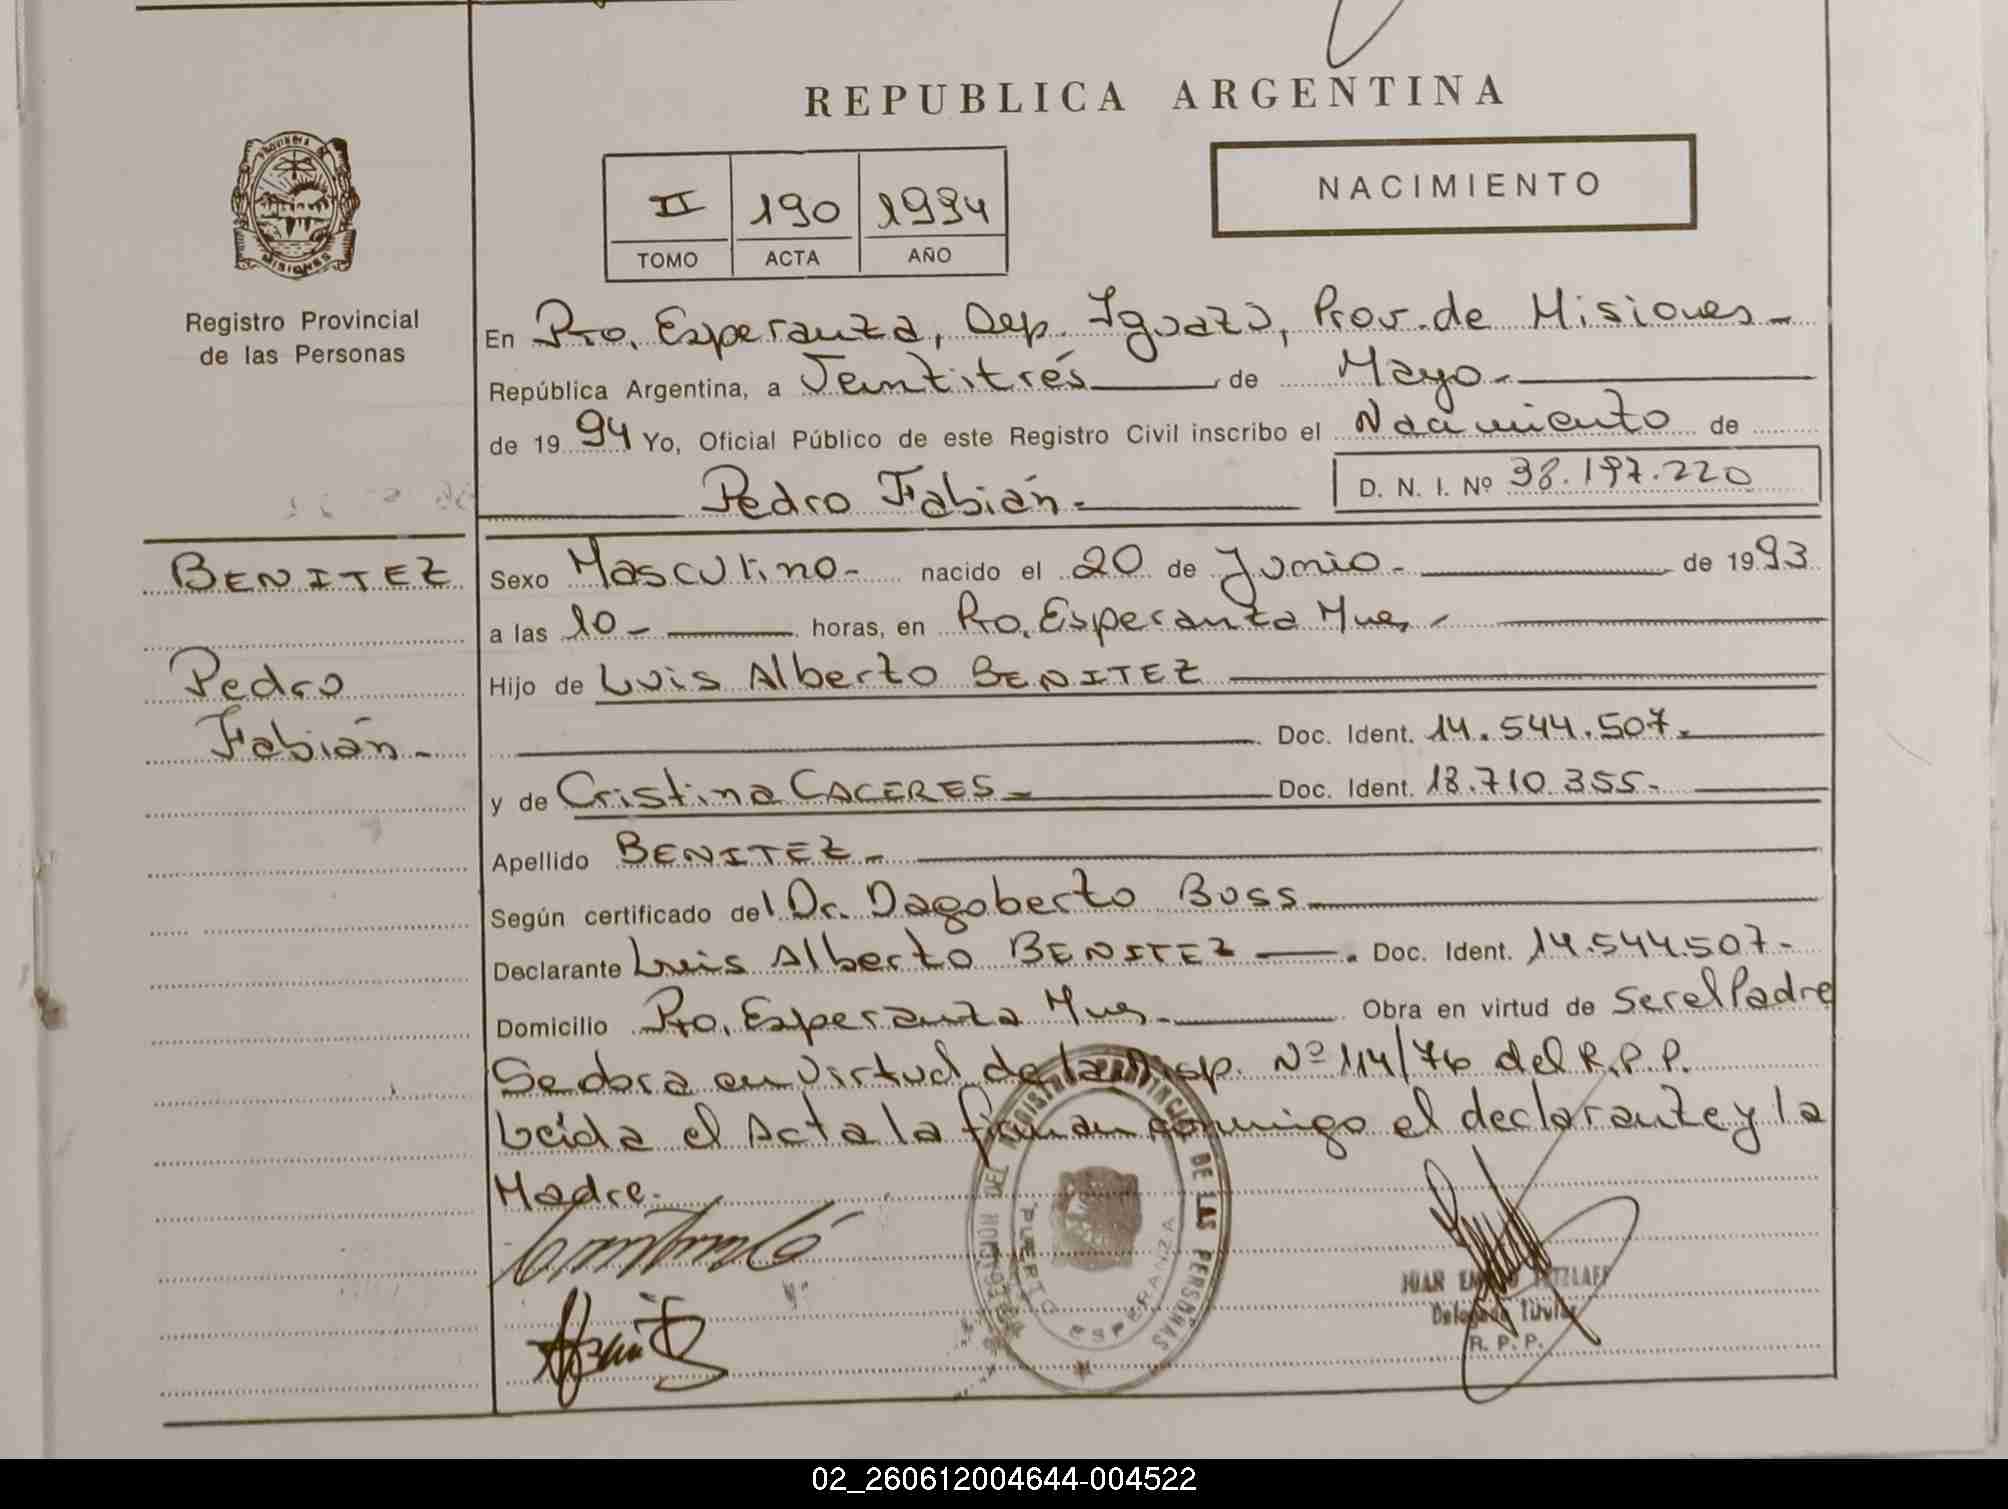 REPUBLICA ARGENTINA
PROVINCIA DE
MISIONES
Registro Provincial
de las Personas
II 190 1994
TOMO ACTA AÑO
NACIMIENTO
En Pto. Esperanza, Dep. Iguazú, Prov. de Misiones-
República Argentina, a Veintitrés de Mayo.-
de 1994 Yo, Oficial Público de este Registro Civil inscribo el Nacimiento de
Pedro Fabián.-
D. N. I. Nº 38.197.220
BENITEZ
Pedro
Fabián-
Sexo Masculino- nacido el 20 de Junio.- de 1993
a las 10- horas, en Pto. Esperanza Mnes.-
Hijo de Luis Alberto BENITEZ
Doc. Ident. 14.544.507.-
y de Cristina CACERES- Doc. Ident. 18.710.355.-
Apellido BENITEZ-
Según certificado del Dr. Dagoberto Boss-
Declarante Luis Alberto BENITEZ-. Doc. Ident. 14.544.507-
Domicilio Pto. Esperanza Mnes- Obra en virtud de Ser el Padre
Se labra en virtud de la Disp. Nº 114/76 del R.P.P.
Leída el Acta la firman conmigo el declarante y la
Madre.
DELEGACION DEL REGISTRO PROVINCIAL DE LAS PERSONAS
PUERTO ESPERANZA
JUAN
Delegado Titular
R. P. P.
02_260612004644-004522